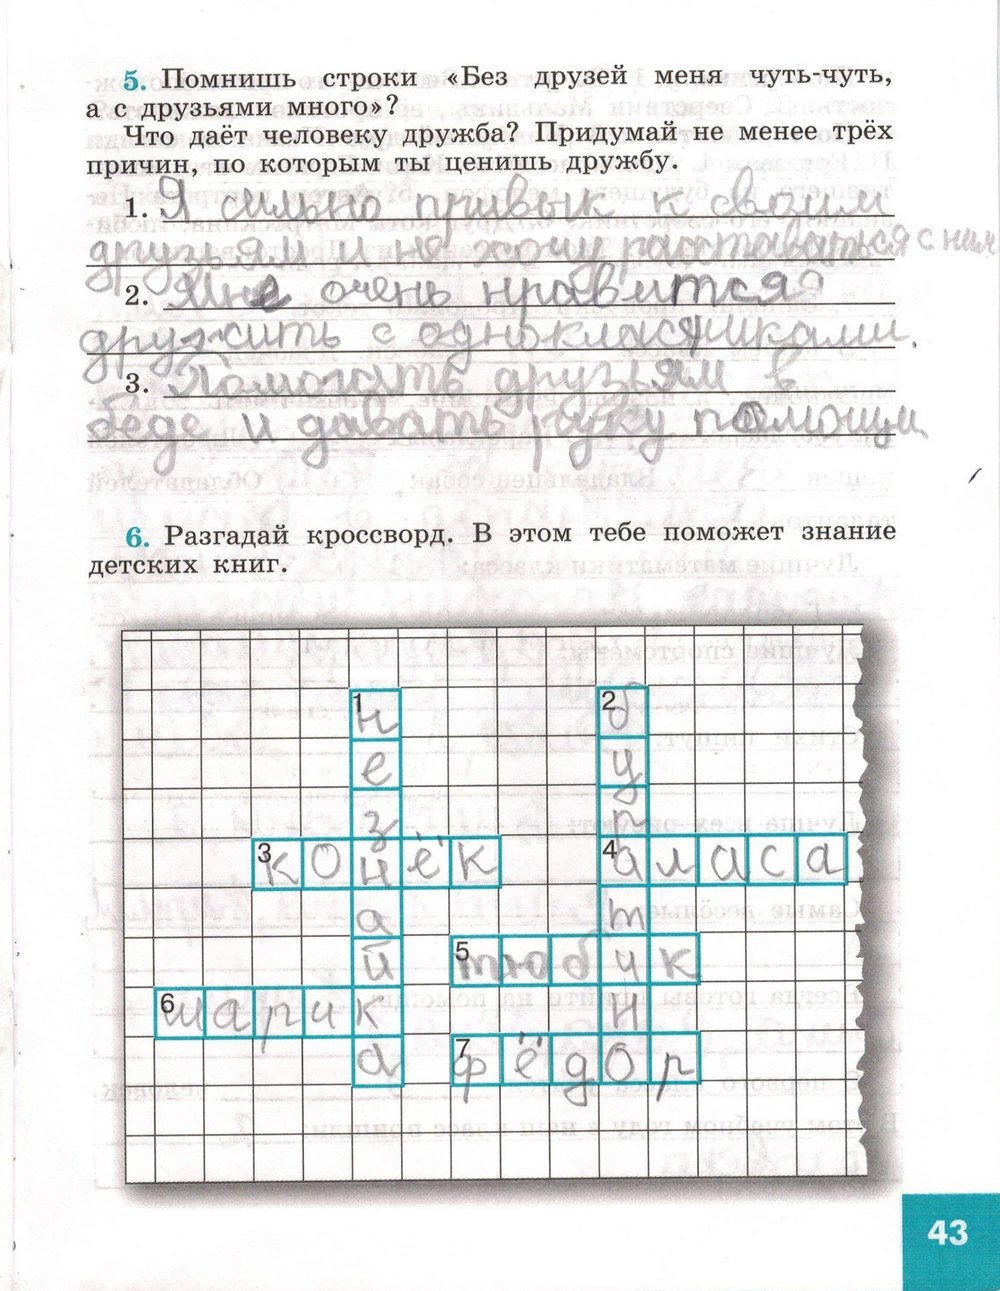 5. Помнишь строки «Без друзей меня чуть-чуть,
а с друзьями много»?
Что даёт человеку дружба? Придумай не менее трёх
причин, по которым ты ценишь дружбу.
1. Я сильно привык к своим
друзьям и не хочу расставаться с ним
2. Мне очень нравится
дружить с однокласниками.
3. Помогать друзьям в
беде и давать руку помощи
6. Разгадай кроссворд. В этом тебе поможет знание
детских книг.
1 н 2 б
е у
з р
3 к о н ё к 4 а л а с а
а т
й 5 т ю б и к
6 ш а р и к н
а 7 ф ё д о р
43